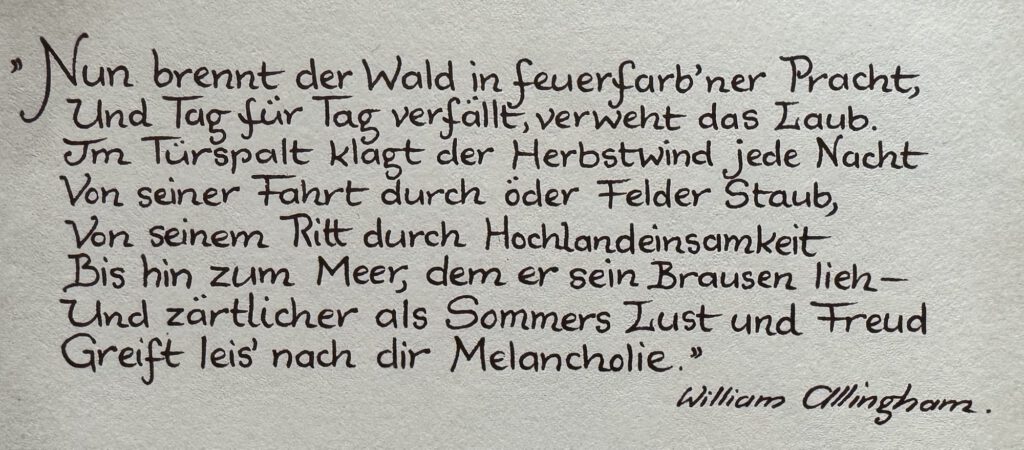 "Nun brennt der Wald in feuerfarb'ner Pracht,
Und Tag für Tag verfällt, verweht das Laub.
Im Türspalt klagt der Herbstwind jede Nacht
Von seiner Fahrt durch öder Felder Staub,
Von seinem Ritt durch Hochlandeinsamkeit
Bis hin zum Meer, dem er sein Brausen lieh—
Und zärtlicher als Sommers Lust und Freud
Greift leis' nach dir Melancholie."
William Allingham.